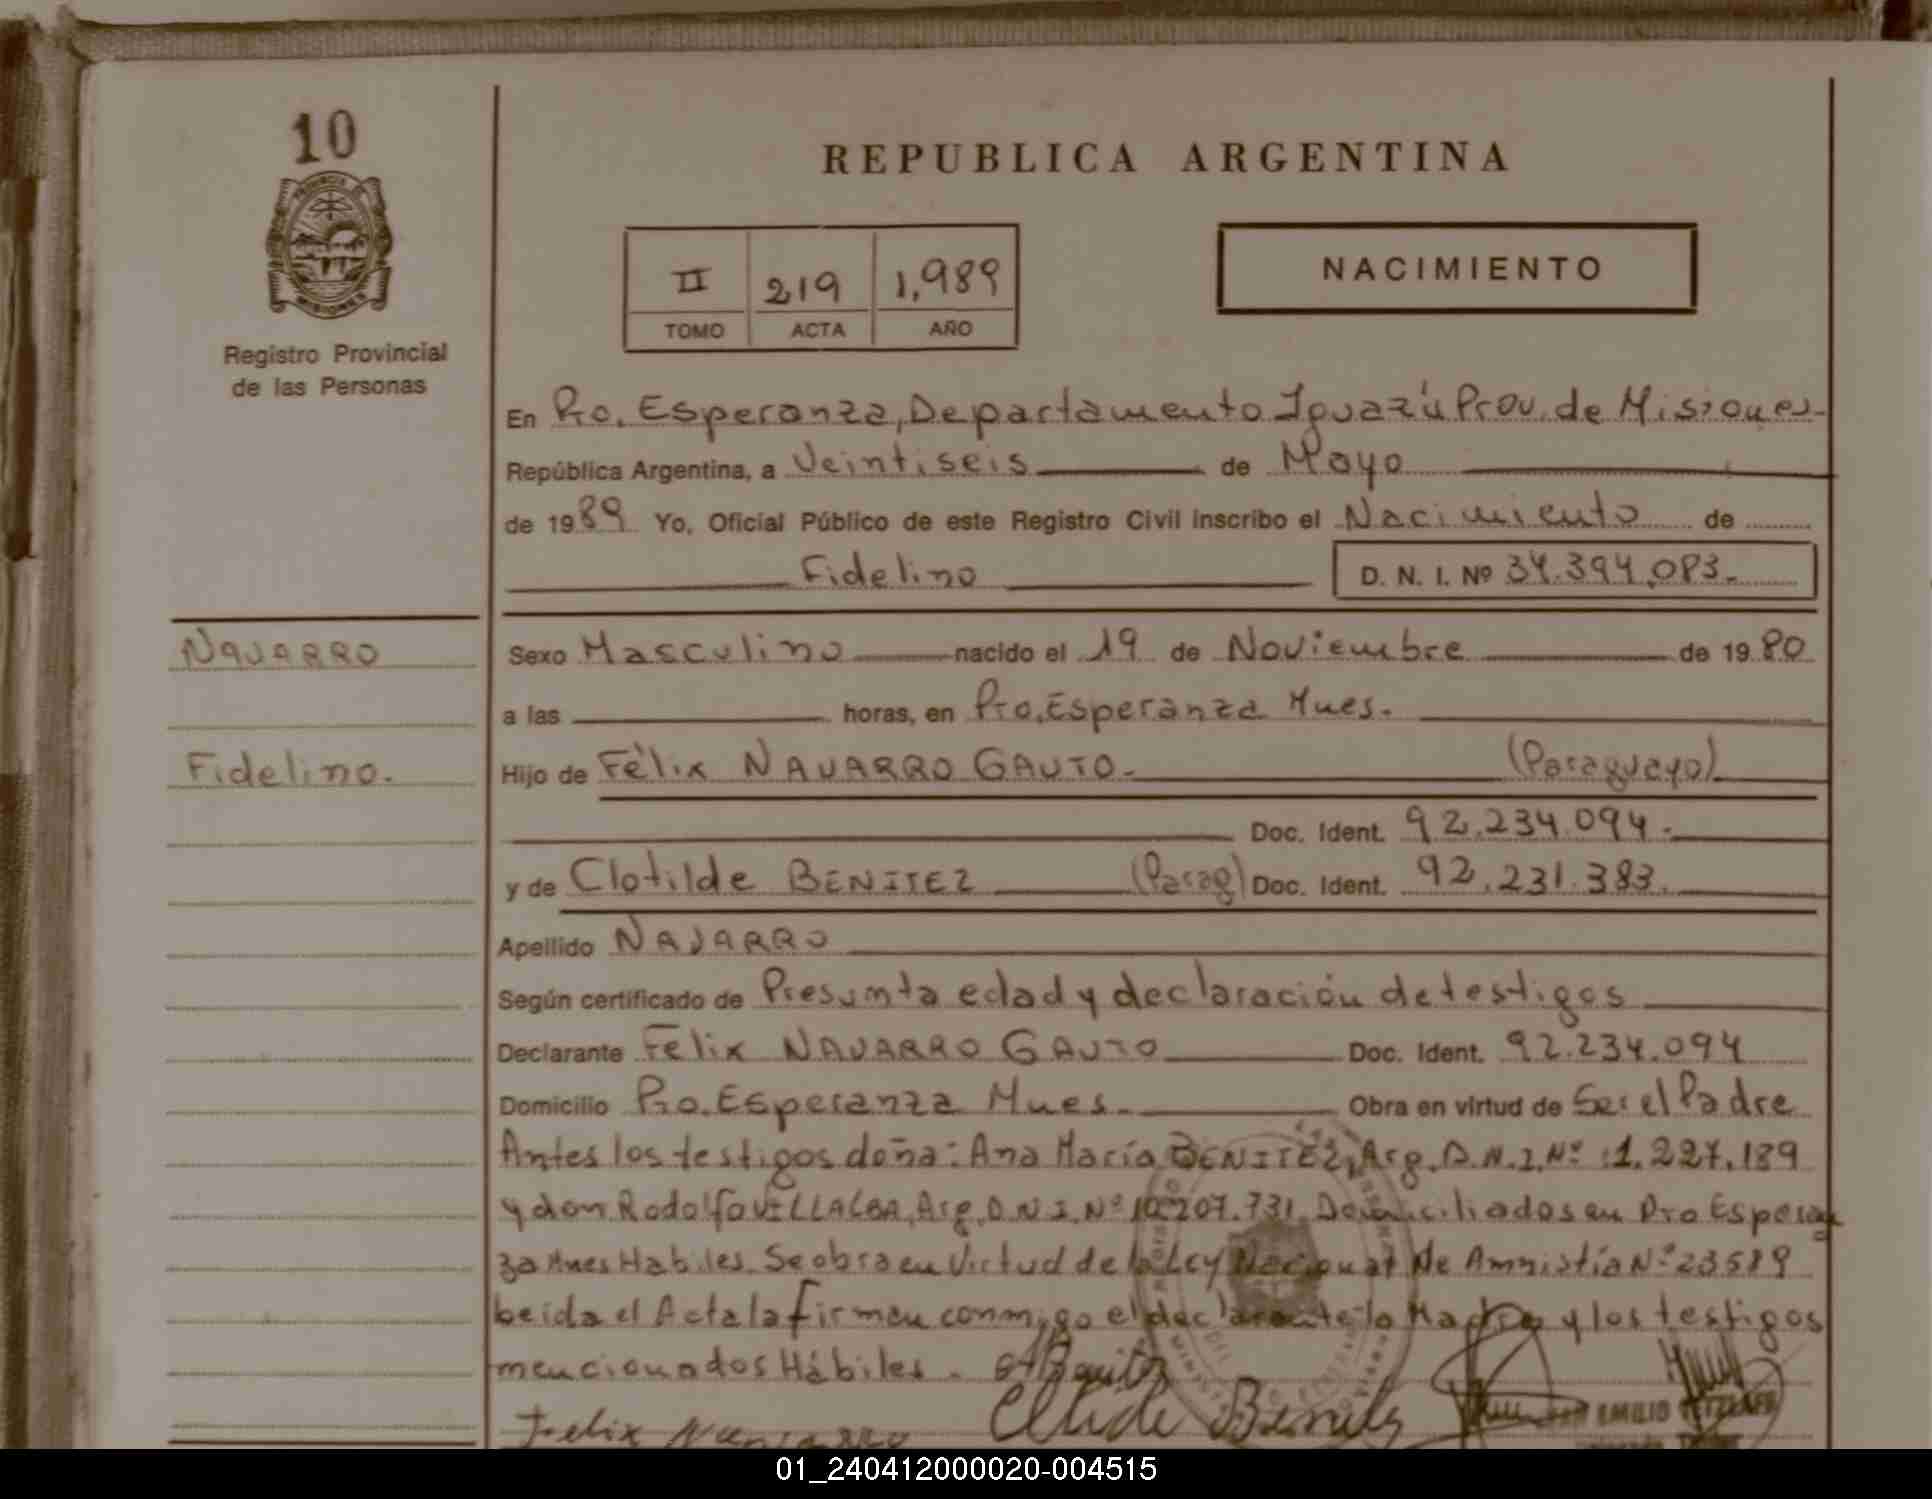 10
PROVINCIA DE
MISIONES
Registro Provincial
de las Personas
REPUBLICA ARGENTINA
II 219 1,989
TOMO ACTA AÑO
NACIMIENTO
En Pto. Esperanza, Departamento Iguazú Prov. de Misiones-
República Argentina, a Veintiseis de Mayo
de 1989 Yo, Oficial Público de este Registro Civil inscribo el Nacimiento de
Fidelino D. N. I. Nº 34.394.083.
NAVARRO
Fidelino.
Sexo Masculino nacido el 19 de Noviembre de 1980
a las horas, en Pto. Esperanza Mnes.
Hijo de Félix NAVARRO GAUTO- (Paraguayo)
Doc. Ident. 92.234.094.
y de Clotilde BENITEZ (Parag) Doc. Ident. 92.231.383.
Apellido NAVARRO
Según certificado de Presunta edad y declaración de testigos
Declarante Felix NAVARRO GAUTO Doc. Ident. 92.234.094
Domicilio Pto. Esperanza Mnes. Obra en virtud de Ser el Padre
Antes los testigos doña: Ana María BENITEZ, Arg. D.N.I. Nº :1.227.189
y don Rodolfo VILLALBA, Arg. D.N.I. Nº 10.207.731. Domiciliados en Pto Esperan
za Mnes Habiles. Se obra en Virtud de la Ley Nacional de Amnistía Nº 23589
Leida el Acta la firman conmigo el declarante la Madre y los testigos
mencionados Hábiles. Benitez
Felix Navarro Clotilde Benitez
EMILIO
01_240412000020-004515